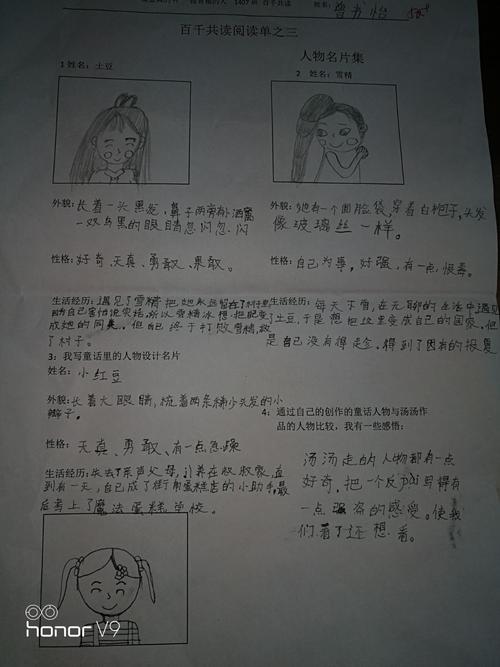 1407班 百千共读
姓名：曾书怡
百千共读阅读单之三
人物名片集
1 姓名：土豆
2 姓名：雪精
外貌：长着一头黑发，鼻子两旁有小酒窝
一双乌黑的眼睛忽闪忽闪
外貌：她有一个圆脸袋，穿着白袍子，头发
像玻璃丝一样。
性格：好奇、天真、勇敢、果敢。
性格：自己为事，好强，有一点狠毒。
生活经历：遇见了雪精把她永远留在了村子里
因为自己害怕说实话，所以雪精冰想把肥变
成她的同类。但自己终于打败雪精，救
了村子。
生活经历：每天下雪，在无聊的生活中遇见
了土豆，于是想把这里变成自己的国家。但
是自己没有得逞，得到了因有的报复
3：我写童话里的人物设计名片
姓名：小红豆
外貌：长着大眼睛，梳着两条小头发的小
辫子。
性格：天真、勇敢、有一点急躁
生活经历：失去了亲声父母，引养在叔叔家，直
到有一天，自己成了街角蛋糕店的小助手，最
后考上了魔法蛋糕学校。
4：通过自己的创作的童话人物与汤汤作
品的人物比较，我有一些感悟：
汤汤走的人物都有一点
好奇，把一个反pài写得有
一点强烈的感爱。使我
们看了还想看。
honor V9